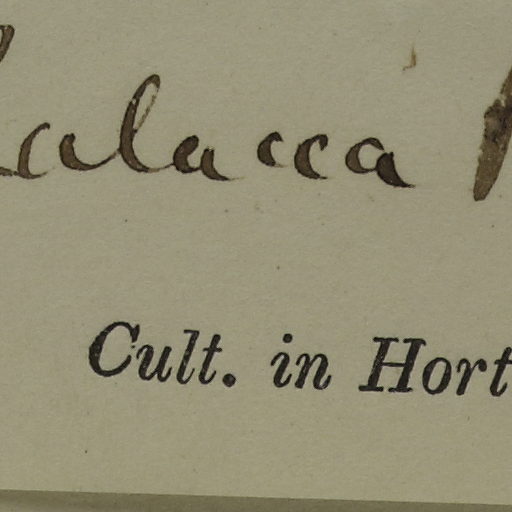 Zalacca
Cult. in Hort